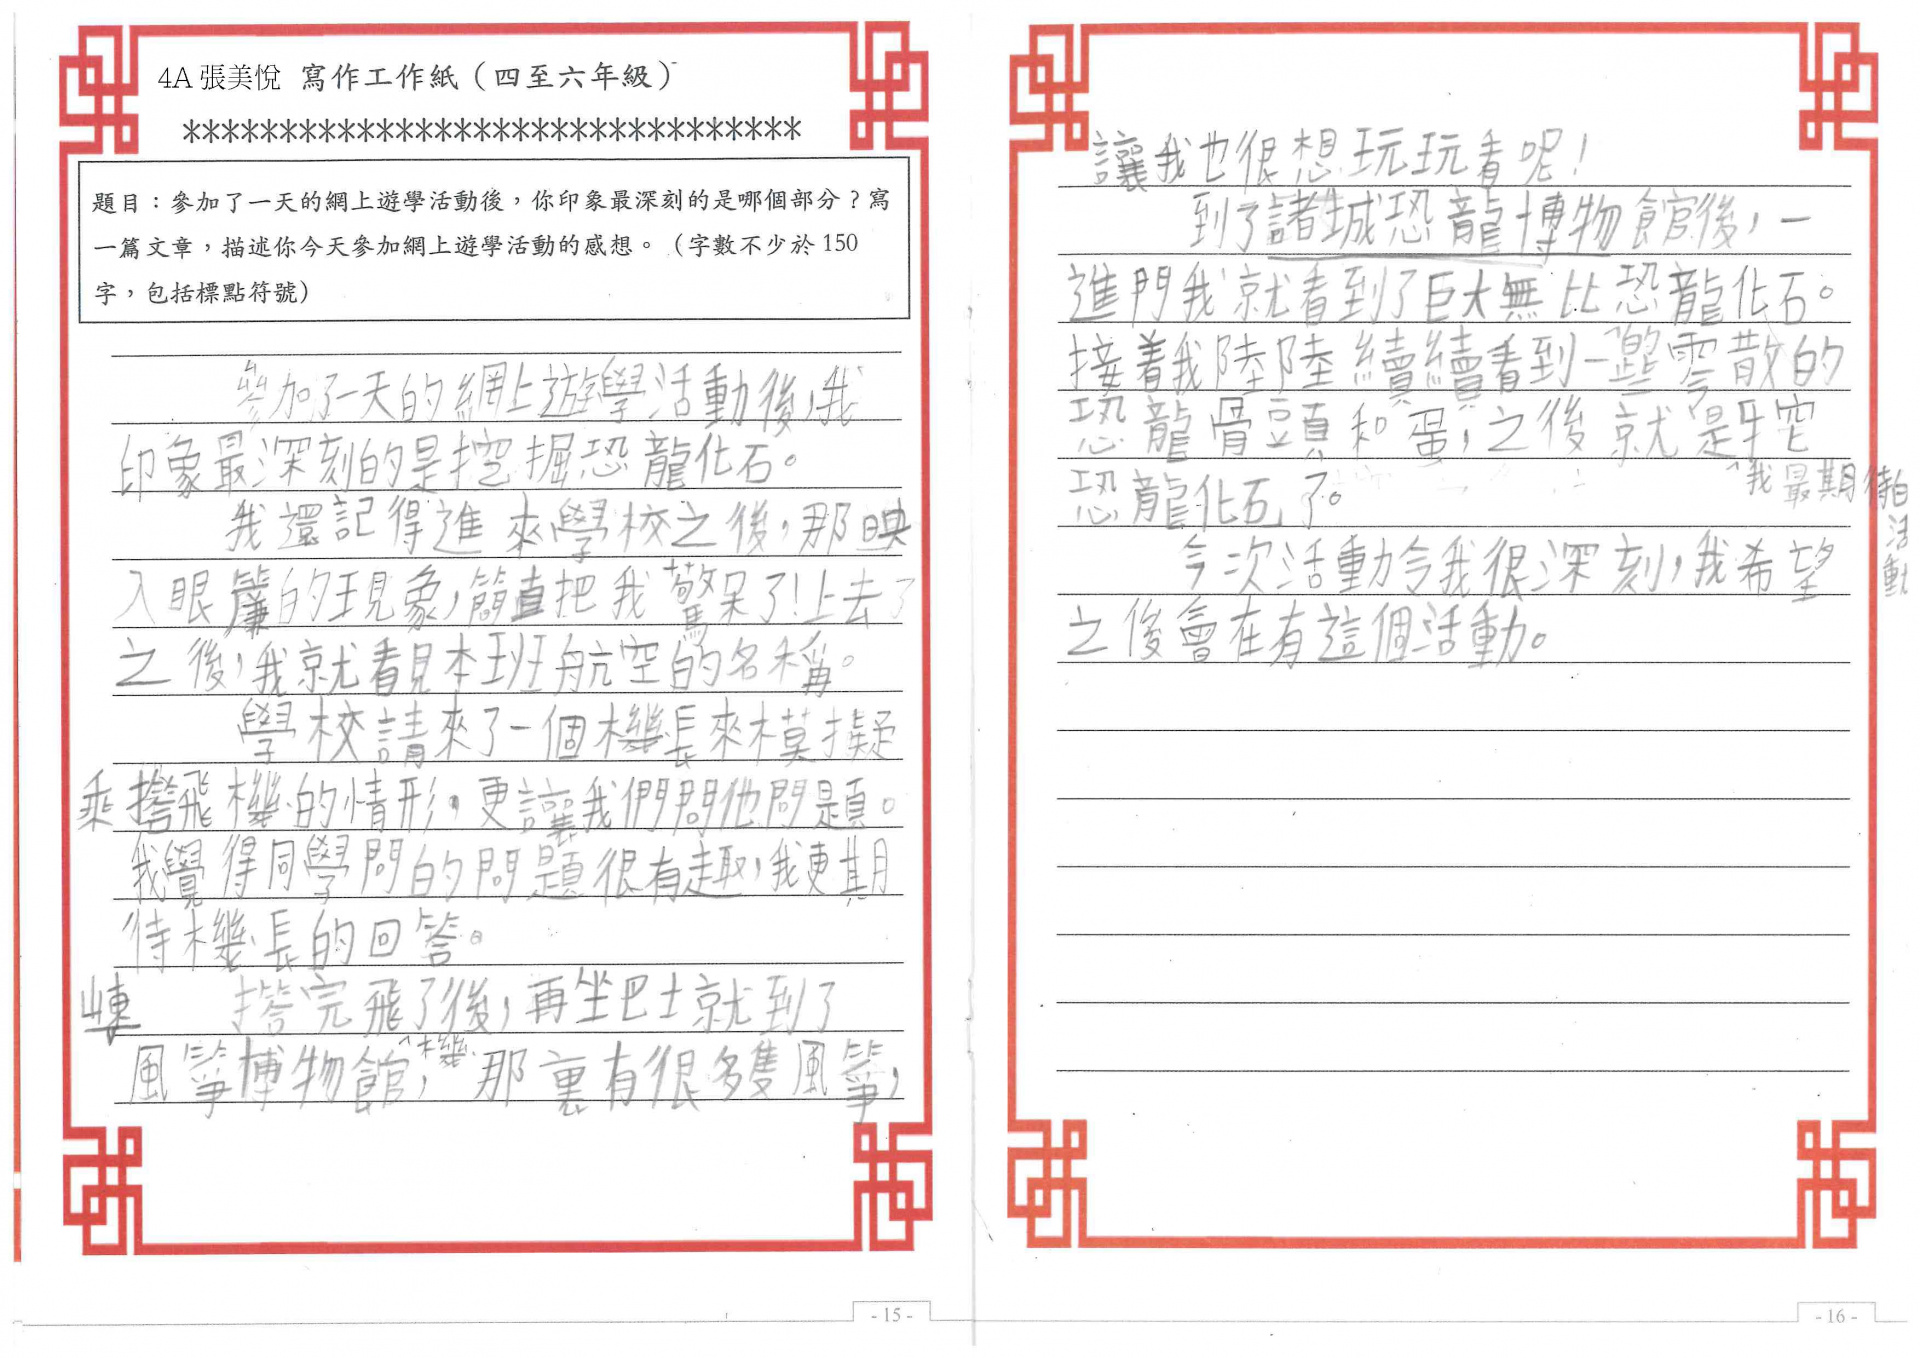 4A 張美悅 寫作工作紙（四至六年級）
**********************************
題目：參加了一天的網上遊學活動後，你印象最深刻的是哪個部分？寫
一篇文章，描述你今天參加網上遊學活動的感想。（字數不少於 150
字，包括標點符號）
參加了一天的網上遊學活動後，我
印象最深刻的是挖掘恐龍化石。
我還記得進來學校之後，那映
入眼簾的現象，簡直把我驚呆了！上去了
之後，我就看見本班航空的名稱。
學校請來了一個機長來模擬
乘搭飛機的情形，更讓我們問他問題。
我覺得同學問的問題很有趣，我更期
待機長的回答。
搭完飛了後，再坐巴士就到了
機
風箏博物館，那裏有很多隻風箏，
- 15 -
讓我也很想玩玩看呢！
到了諸城恐龍博物館後，一
進門我就看到了巨大無比恐龍化石。
的
接着我陸陸續續看到一些零散的
恐龍骨頭和蛋，之後就是挖
我最期待的活動
恐龍化石了。
今次活動令我很深刻，我希望
之後會在有這個活動。
- 16 -